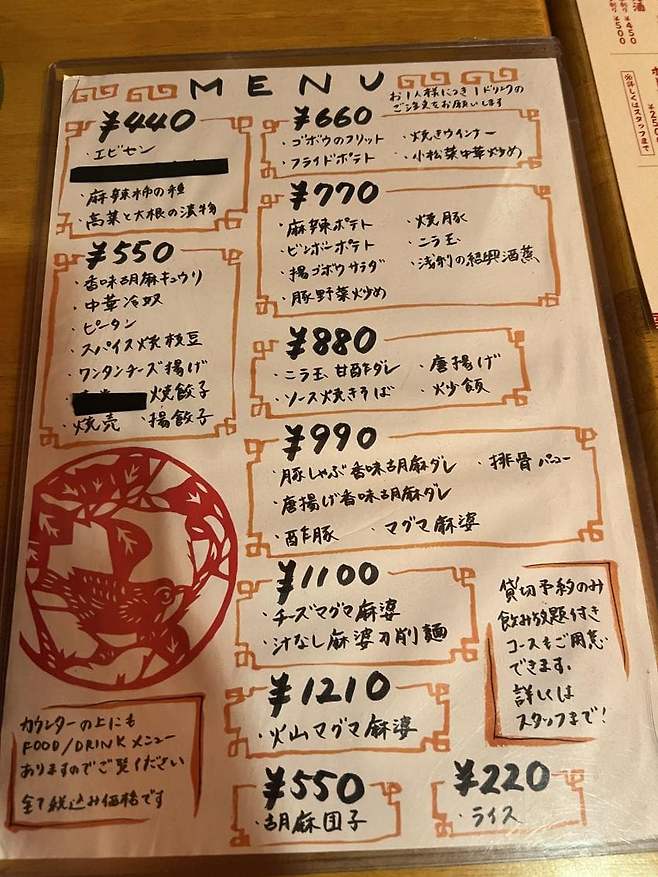 MENU
お1人様につき1ドリンクの
ご注文をお願いします
¥440
・エビセン
・麻辣柿の種
・高菜と大根の漬物
¥550
・香味胡麻キュウリ
・中華冷奴
・ピータン
・スパイス焼枝豆
・ワンタンチーズ揚げ
焼餃子
・焼売 ・揚餃子
¥660
・ゴボウのフリット ・焼きウインナー
・フライドポテト ・小松菜中華炒め
¥770
・麻辣ポテト ・焼豚
・ビンボーポテト ・ニラ玉
・揚ゴボウサラダ ・浅利の紹興酒蒸
・豚野菜炒め
¥880
・ニラ玉 甘酢ダレ ・唐揚げ
・ソース焼きそば ・炒飯
¥990
・豚しゃぶ香味胡麻ダレ ・排骨
・唐揚げ香味胡麻ダレ
・酢豚 ・マグマ麻婆
¥1100
・チーズマグマ麻婆
・汁なし麻婆刀削麺
¥1210
・火山マグマ麻婆
¥550
・胡麻団子
¥220
・ライス
貸切予約のみ
飲み放題付き
コースもご用意
できます。
詳しくは
スタッフまで!
カウンターの上にも
FOOD/DRINKメニュー
ありますのでご覧ください
全て税込み価格です
酒
¥450
¥500
詳しくはスタッフまで